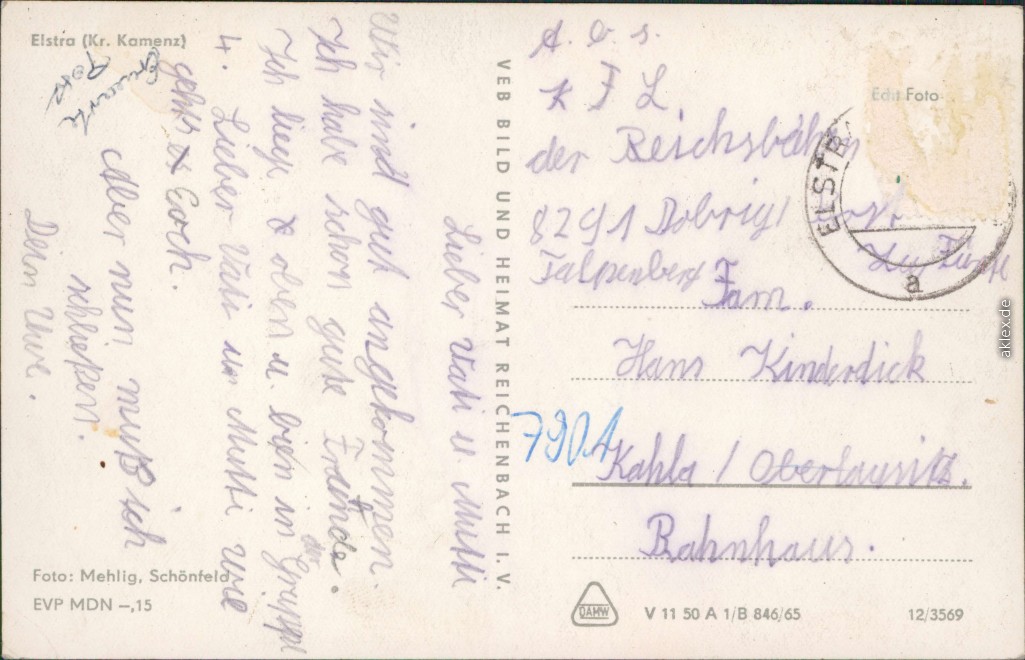 Elstra (Kr. Kamenz)
Lieber Vati u Mutti
Wir sind gut angekommen.
Ich habe schon gute Freunde.
Ich liege oben u. bin in der Gruppe
4. Lieber Vati un Mutti wie
gehts Euch.
Aber nun muß ich
schließen.
Dein Uwe.
Foto: Mehlig, Schönfeld
EVP MDN –,15
VEB BILD UND HEIMAT REICHENBACH I. V.
A. b. s.
K F L
der Reichsbahn
8291 Dobrig/
Falpenberg
Echt Foto
ELSTRA
a
Fam.
Hans Kinderdick
7901
Kahla / Oberlausitz.
Bahnhaus.
DAMW
V 11 50 A 1/B 846/65
12/3569
aklex.de